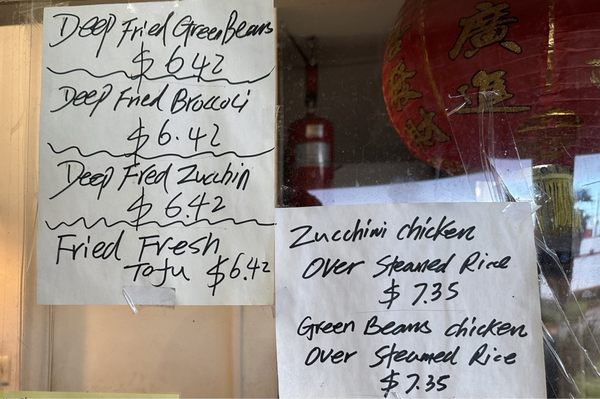 Deep Fried Green Beans
$ 6.42
Deep Fried Broccoli
$ 6.42
Deep Fred Zucchin
$ 6.42
Fried Fresh
Tofu $6.42
Zucchini chicken
Over Steamed Rice
$ 7.35
Green Beans chicken
Over Steamed Rice
$ 7.35
廣進